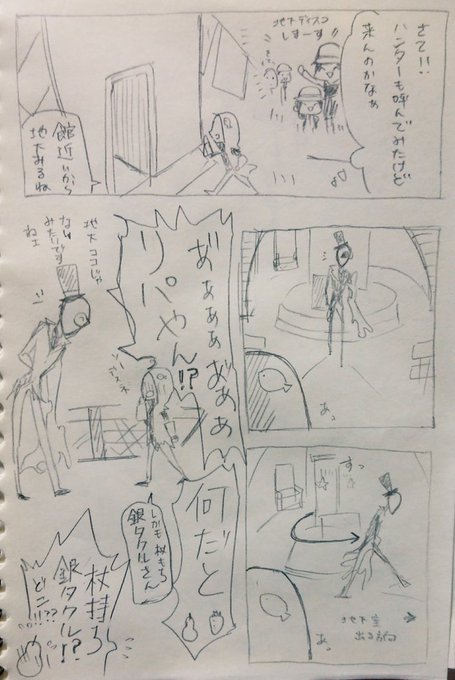 さて!!
ハンターも呼んでみたけど
来んのかなぁ
地下ディスコ
しまーす
館近いから
地下みるね
あっ
すっ
地下室
出る所
あっ
あ゛あぁぁあ゛ああん
リパやん!?
地下ココじゃ
ないみたいですねェ
何だと
しかも杖もち
銀タクルさん
杖持ち
銀タクル!?
どこ!!??